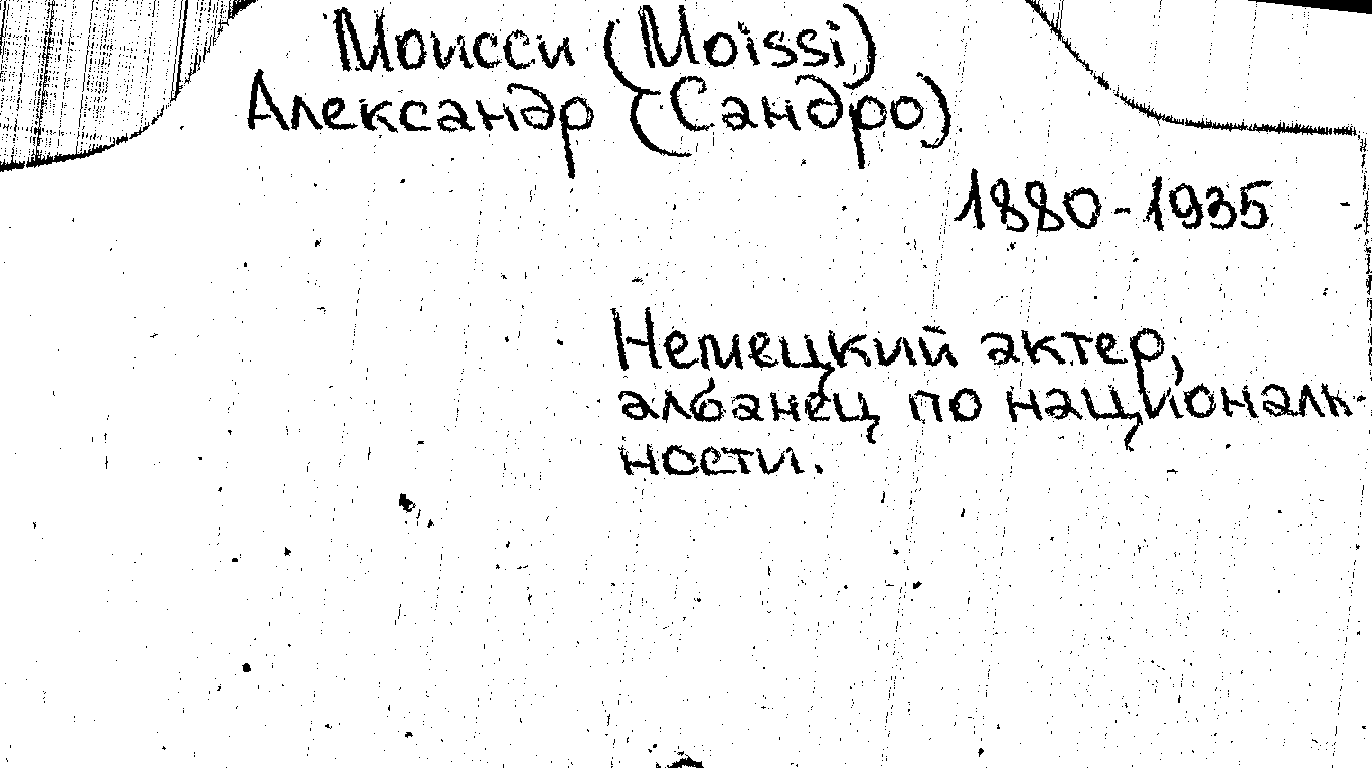 Моисси (Moissi)
Александр (Сандро)
1880-1935
Немецкий актер,
албанец по националь-
ности.